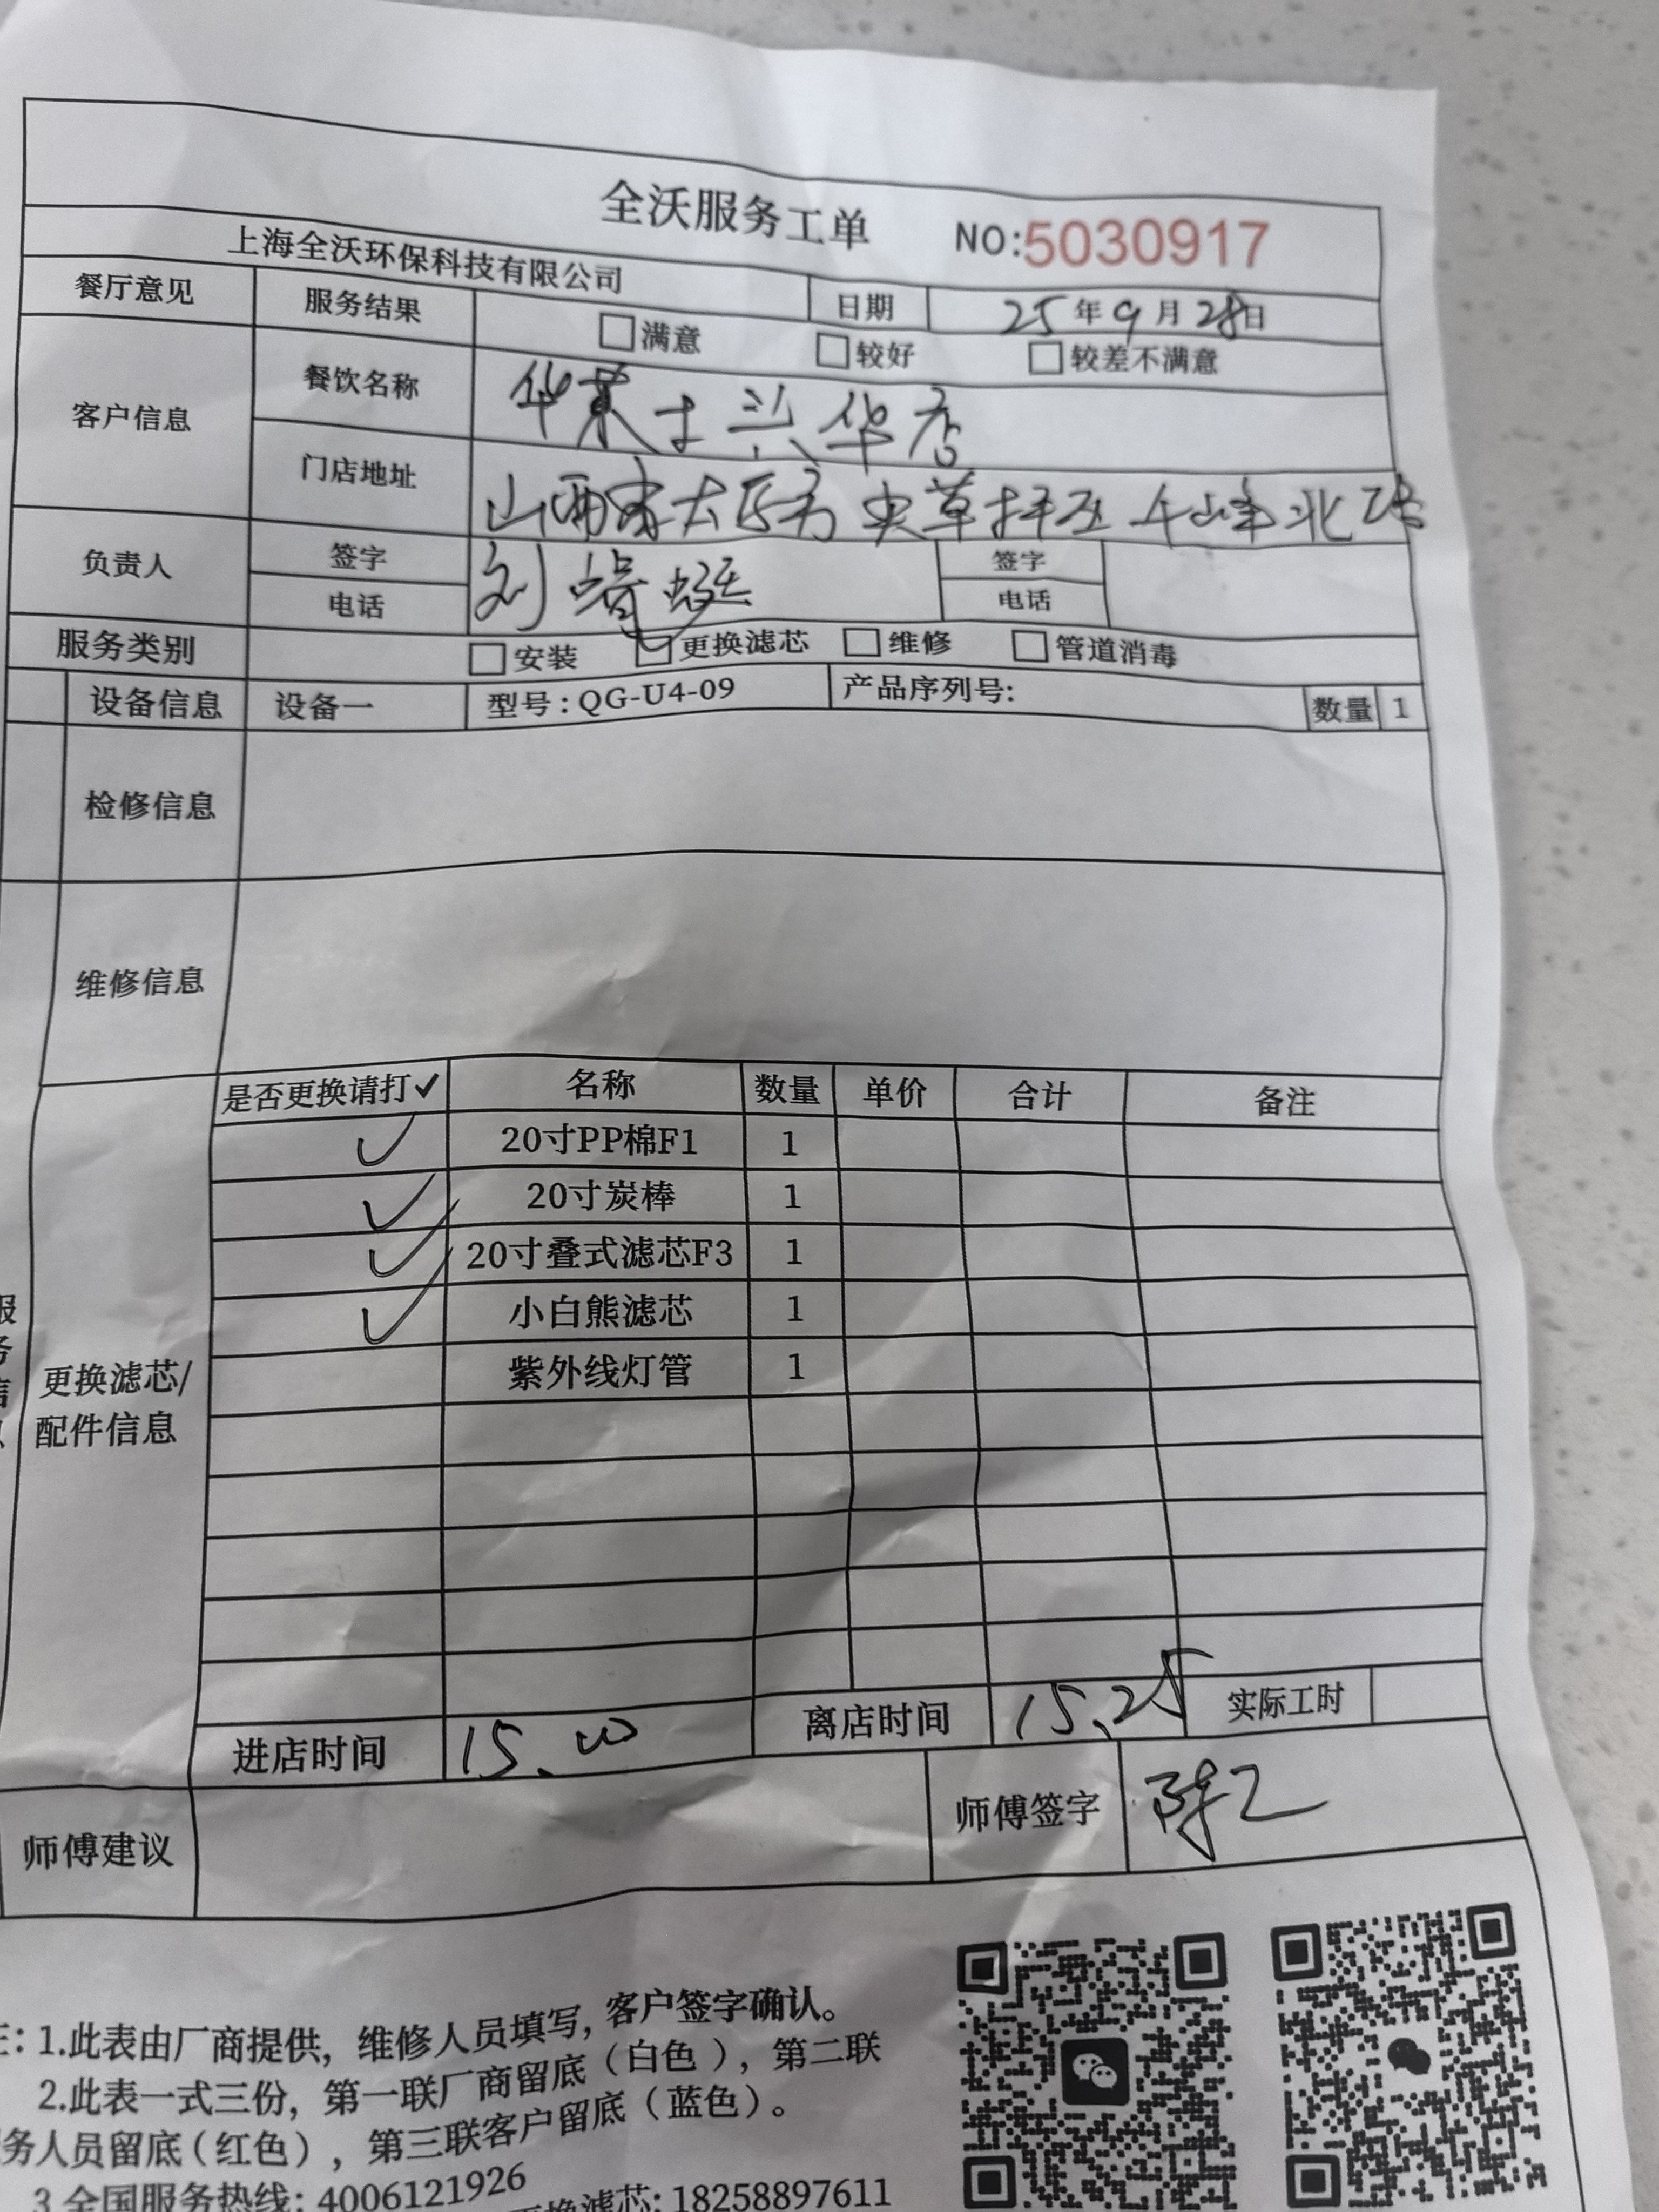 全沃服务工单 NO:5030917
上海全沃环保科技有限公司 日期 25年9月28日
餐厅意见 服务结果 □满意 □较好 □较差不满意
客户信息 餐饮名称 华莱士兴华店
门店地址 山西省太原市尖草坪区千峰北路
负责人 签字 刘蜻蜓 签字
电话 电话
服务类别 □安装 □更换滤芯 □维修 □管道消毒
设备信息 设备一 型号:QG-U4-09 产品序列号: 数量 1
检修信息
维修信息
是否更换请打✓ 名称 数量 单价 合计 备注
✓ 20寸PP棉F1 1
✓ 20寸炭棒 1
✓ 20寸叠式滤芯F3 1
✓ 小白熊滤芯 1
紫外线灯管 1
更换滤芯/
配件信息
进店时间 15.00 离店时间 15.25 实际工时
师傅建议 师傅签字
1.此表由厂商提供，维修人员填写，客户签字确认。
2.此表一式三份，第一联厂商留底（白色），第二联
务人员留底（红色），第三联客户留底（蓝色）。
3.全国服务热线: 4006121926 更换滤芯: 18258897611